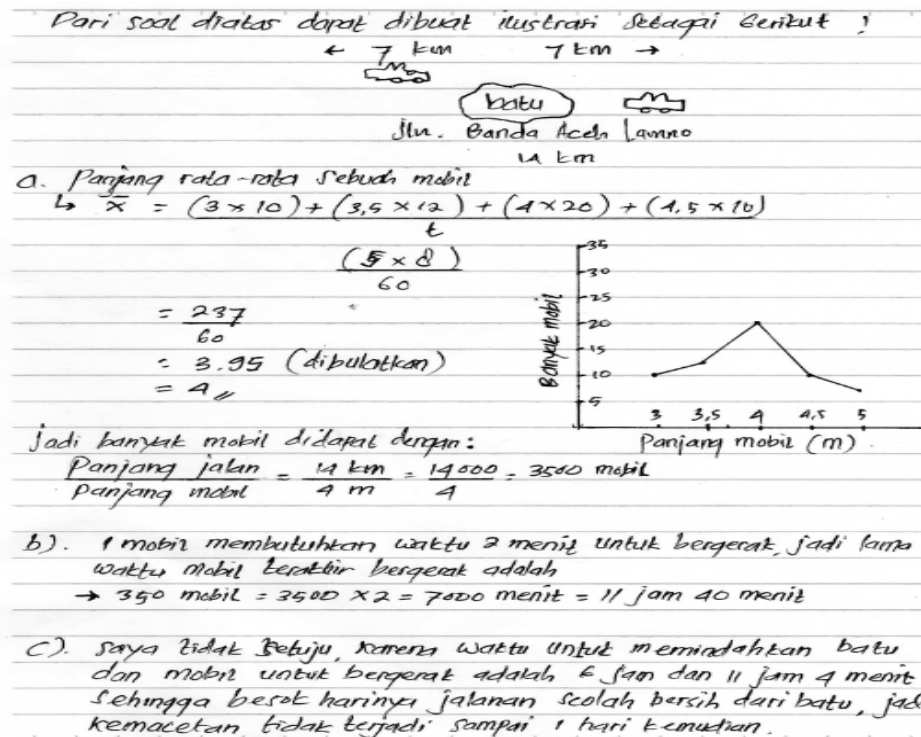 Dari soal diatas dapat dibuat ilustrasi sebagai berikut !
← 7 km 7 km →
batu
Jln. Banda Aceh Lamno
14 km
a. Panjang rata-rata sebuah mobil
↳ x̄ = (3 x 10) + (3,5 x 12) + (4 x 20) + (4.5 x 10)
t
(5 x 8)
60
= 237
60
= 3.95 (dibulatkan)
= 4 //
Banyak mobil
35
30
25
20
15
10
5
3 3,5 4 4,5 5
Panjang mobil (m)
jadi banyak mobil didapat dengan:
Panjang jalan = 14 km = 14000 = 3500 mobil
Panjang mobil 4 m 4
b). 1 mobil membutuhkan waktu 2 menit untuk bergerak, jadi lama
waktu mobil terakhir bergerak adalah
→ 350 mobil = 3500 x 2 = 7000 menit = 11 jam 40 menit
c). saya tidak setuju, karena waktu untuk memindahkan batu
dan mobil untuk bergerak adalah 6 jam dan 11 jam 4 menit
sehingga besok harinya jalanan seolah bersih dari batu, jad
kemacetan tidak terjadi sampai 1 hari kemudian.